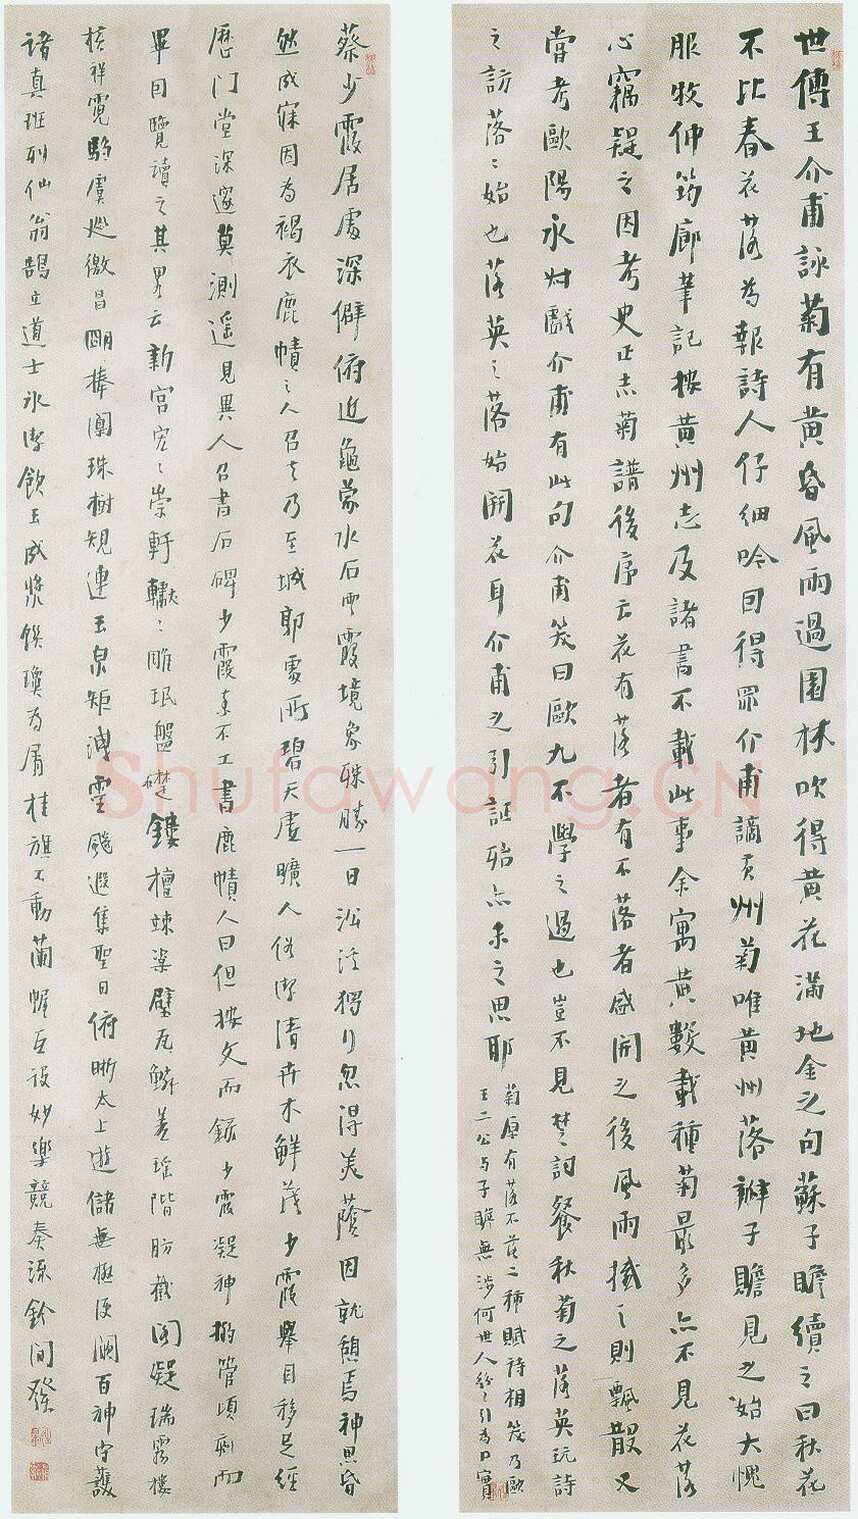 世傳王介甫詠菊有黃昏風雨過園林吹得黃花滿地金之句蘇子瞻續之曰秋花
不比春花落為報詩人仔細吟因得罪介甫謫黃州菊唯黃州落瓣子瞻見之始大愧
服牧仲筠廊筆記按黃州志及諸書不載此事余寓黃數載種菊最多亦不見花落
心竊疑之因考史正志菊譜後序云花有落者有不落者盛開之後風雨撼之則飄散又
當考歐陽永叔戲介甫有此句介甫笑曰歐九不學之過也豈不見楚詞餐秋菊之落英玩詩
之訪落落始也落英之落始開花耳介甫之引証殆亦未之思耶
菊原有落不落二種賦詩相笑乃歐
王二公与子瞻無涉何世人紛紛引為口實
蔡少霞居處深僻俯近龜蒙水石雲霞境象殊勝一日沿溪獨行忽得美蔭因就憩焉神思昏
然成寐因為褐衣鹿幘之人召去乃至城郭處所碧天虛曠人俗潔清卉木鮮茂少霞舉目移足經
歷門堂深邃莫測遥見異人召書石碑少霞素不工書鹿幘人曰但按文而錄少霞凝神搦管頃刻而
畢因覽讀之其略云新宮宏宏崇軒轍轍雕珉盤礎鏤檀竦楶璧瓦鱗差瑤階肪截閣凝瑞霧樓
橫祥霓騶虞巡徼昌明捧闑珠樹規連玉泉矩洩靈飈遐集聖日俯晰太上遊儲無極便闕百神守護
諸真班列仙翁鵠立道士氷潔飲玉成漿饌瓊為屑桂旗不動蘭幄互設妙樂競奏流鈴間發
Shufawang.CN